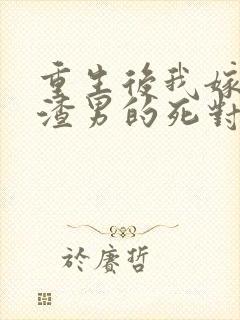 重生後我嫁
渣男的死對
於賡哲